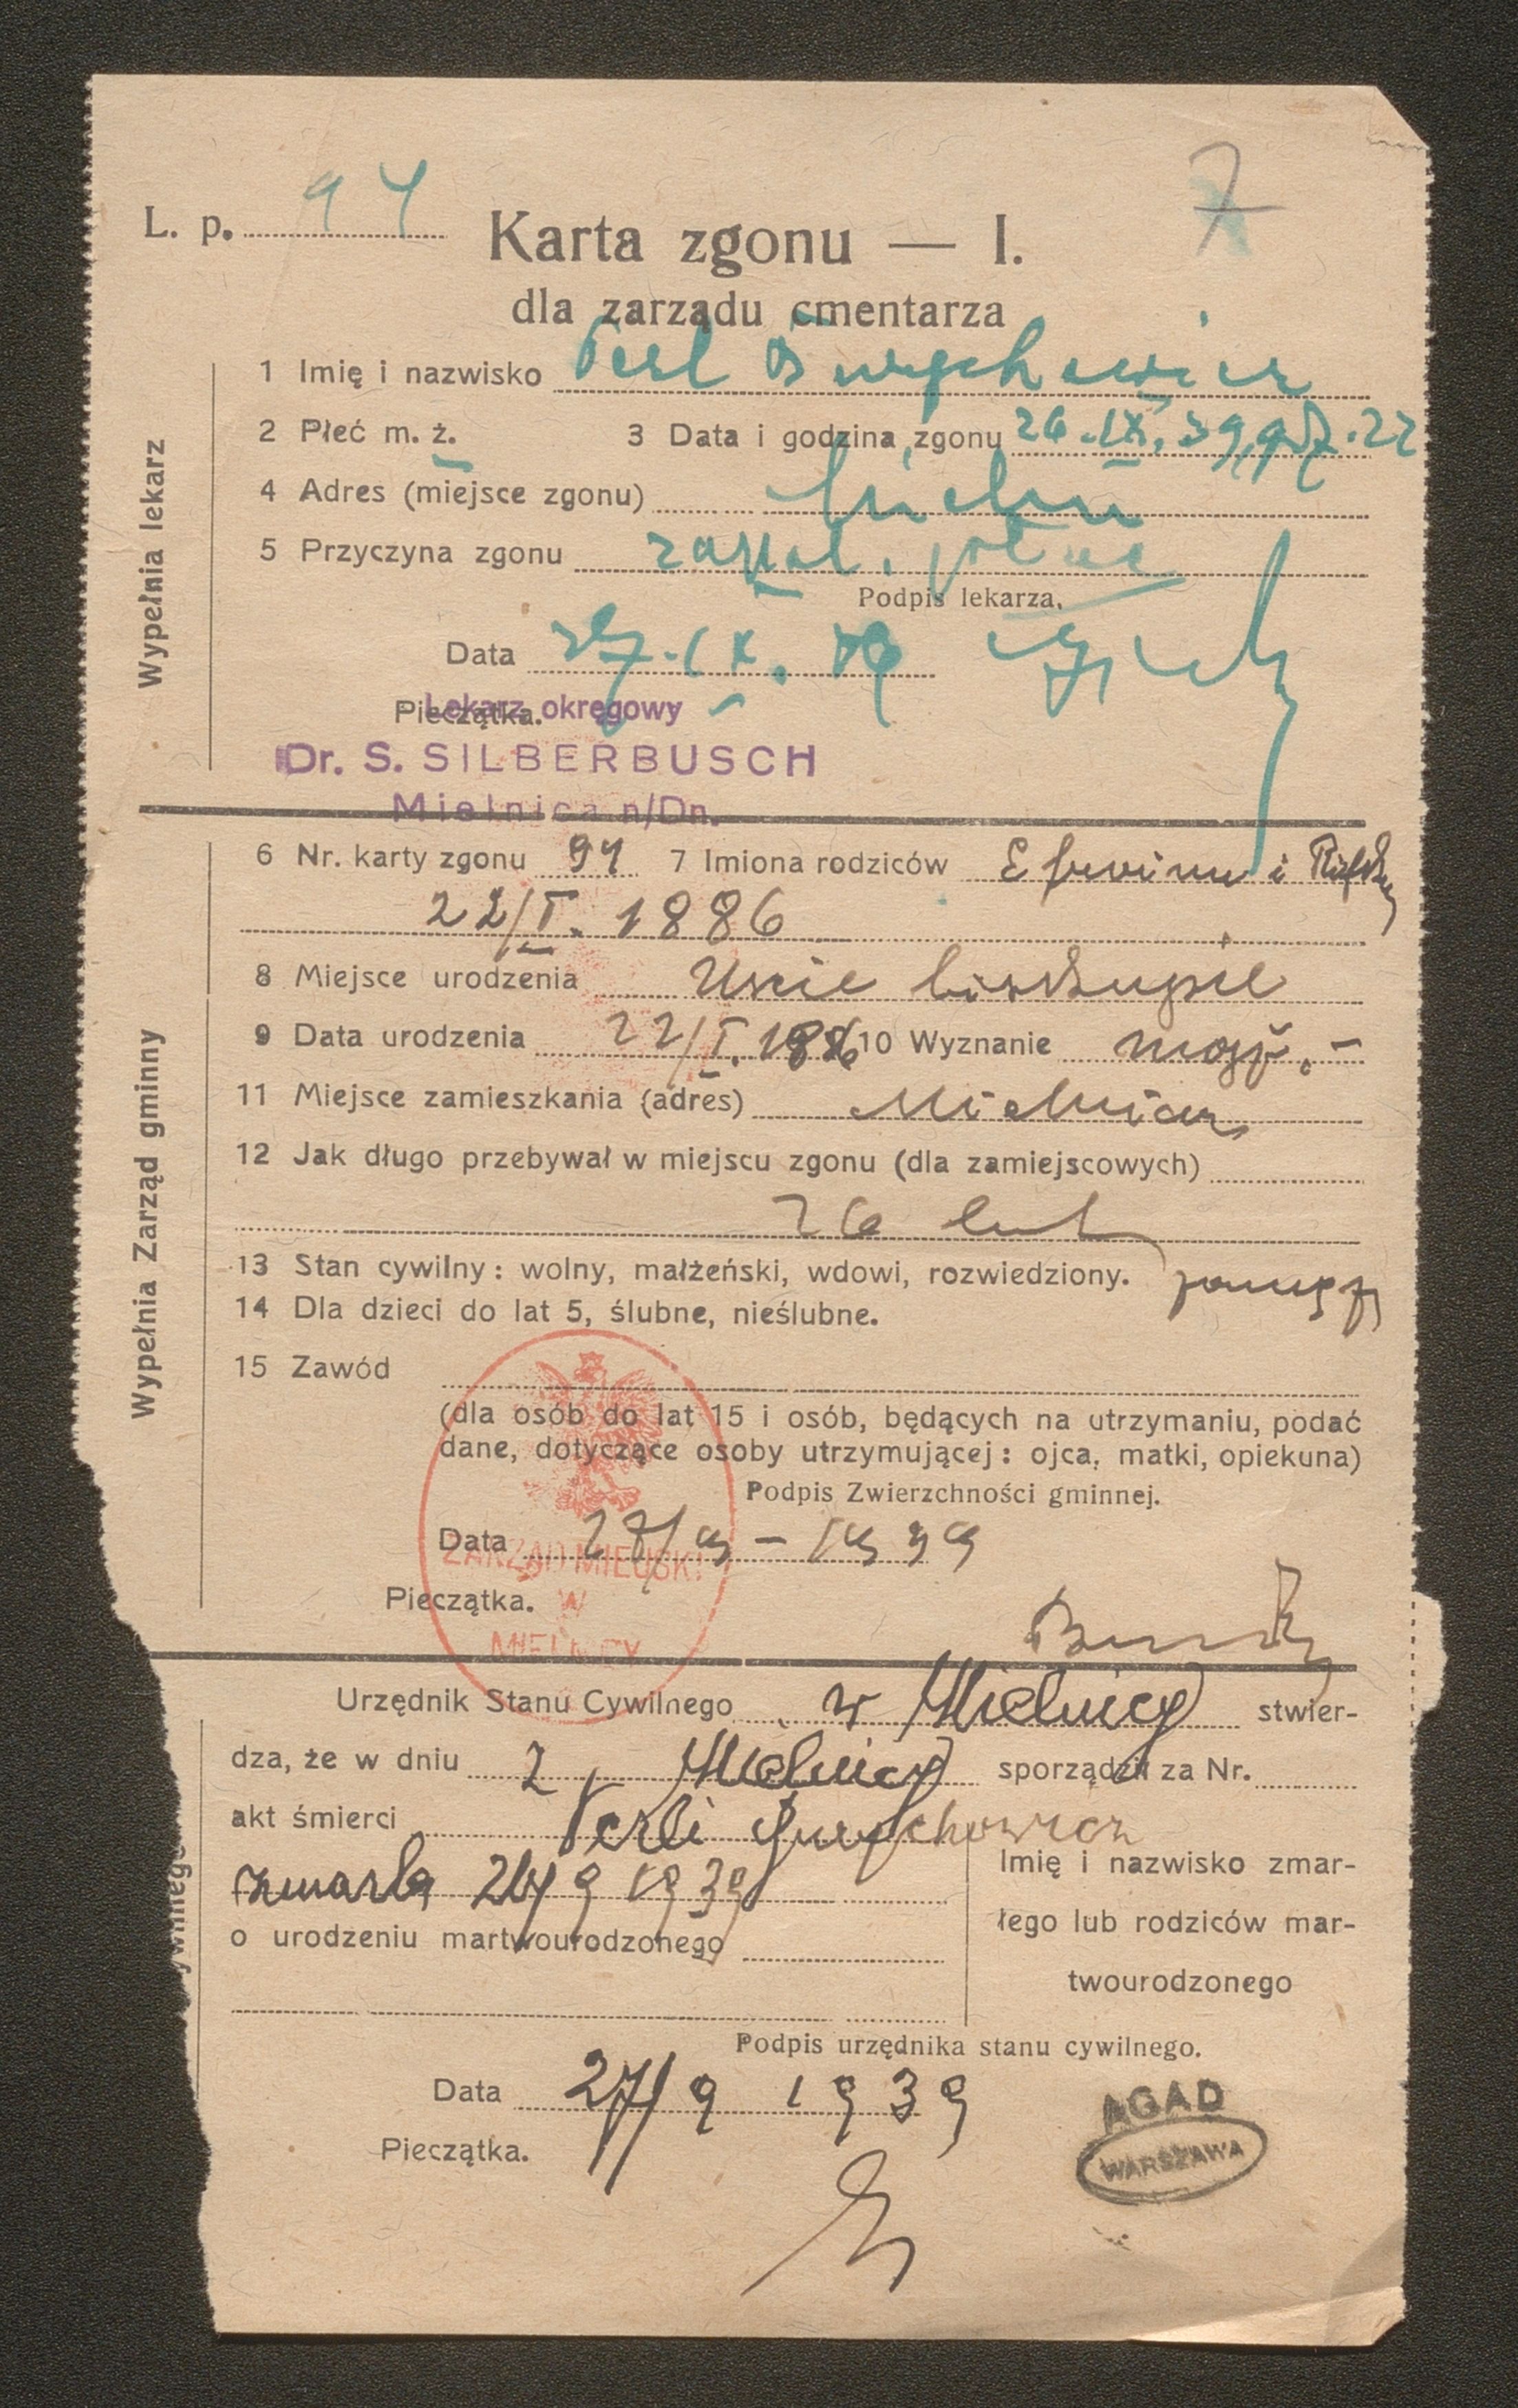 L. p. 94
7
Karta zgonu — I.
dla zarządu cmentarza
Wypełnia lekarz
1 Imię i nazwisko Perl
2 Płeć m. ż. 3 Data i godzina zgonu 26.IX.39, 22
4 Adres (miejsce zgonu)
5 Przyczyna zgonu zapal. płuc
Podpis lekarza.
Data 27.IX.39
Pieczątka.
Lekarz okręgowy
Dr. S. SILBERBUSCH
Mielnica n/Dn.
Wypełnia Zarząd gminny
6 Nr. karty zgonu 94 7 Imiona rodziców i
22/I. 1886
8 Miejsce urodzenia Uście biskupie
9 Data urodzenia 22/I. 1886 10 Wyznanie mojż. –
11 Miejsce zamieszkania (adres) Mielnica
12 Jak długo przebywał w miejscu zgonu (dla zamiejscowych)
26 lat
13 Stan cywilny: wolny, małżeński, wdowi, rozwiedziony.
14 Dla dzieci do lat 5, ślubne, nieślubne.
15 Zawód
(dla osób do lat 15 i osób, będących na utrzymaniu, podać
dane, dotyczące osoby utrzymującej: ojca, matki, opiekuna)
Podpis Zwierzchności gminnej.
Data 27/9 – 1939
Pieczątka.
ZARZĄD MIEJSKI
W
MIELNICY
Urzędnik Stanu Cywilnego w Mielnicy stwier-
dza, że w dniu 2 Mielnicy sporządził za Nr.
akt śmierci Perli
zmarła 26/9 1939
Imię i nazwisko zmar-
łego lub rodziców mar-
twourodzonego
o urodzeniu martwourodzonego
Podpis urzędnika stanu cywilnego.
Data 27/9 1939
Pieczątka.
AGAD
WARSZAWA